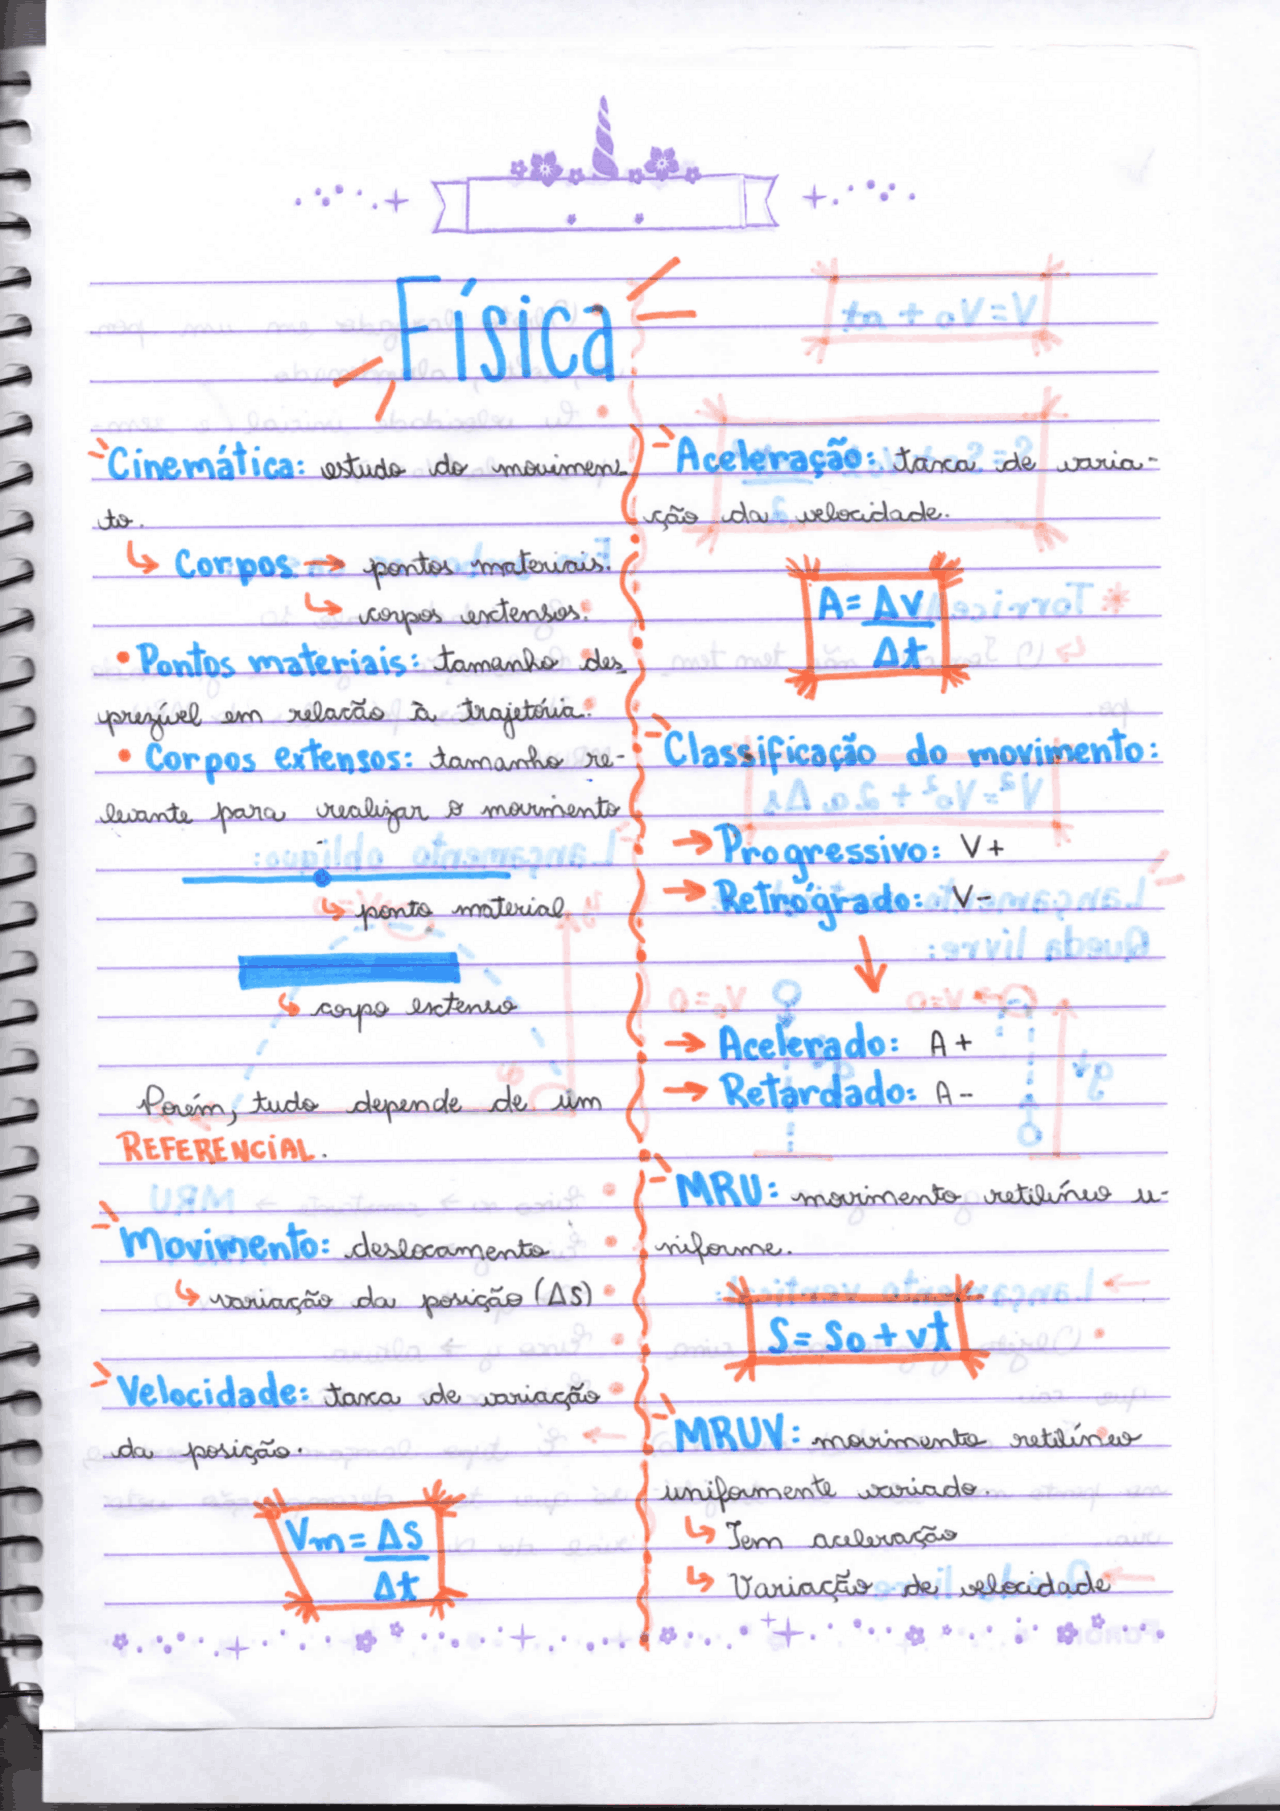 Física
Cinemática: estudo do movimen-
to.
↳ Corpos → pontos materiais.
↳ corpos extensos.
• Pontos materiais: tamanho des-
prezível em relacão à trajetória.
• Corpos extensos: tamanho re-
levante para realizar o movimento
↳ ponto material
↳ corpo extenso
Porém, tudo depende de um
REFERENCIAL.
Movimento: deslocamento
↳ variação da posição (ΔS)
Velocidade: taxa de variação
da posição.
Vm = ΔS
Δt
Aceleração: taxa de varia-
ção da velocidade.
A = Δv
Δt
Classificação do movimento:
→ Progressivo: V+
→ Retrógrado: V-
↓
→ Acelerado: A+
→ Retardado: A-
MRU: movimento retilíneo u-
niforme.
S = So + vt
MRUV: movimento retilíneo
uniformemente variado.
↳ Tem aceleração
↳ Variação de velocidade